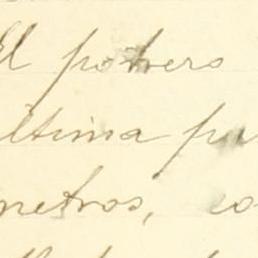 El potrero
última pu
metros, co